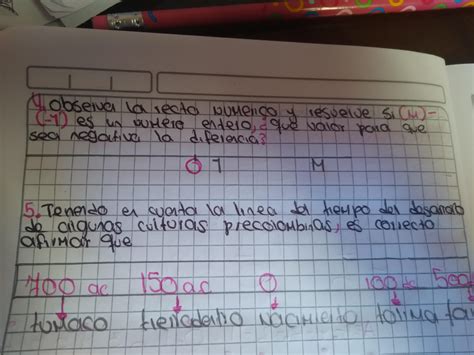 1. observa la recta numérica y resuelve si (M)-
(-7) es un número entero, ¿que valor para que
sea negativa la diferencia?
0 7 M
5. Teniendo en cuenta la linea del tiempo del desarrollo
de algunas culturas precolombinas, es correcto
afirmar que
700 ac 150 a.c 0 100 500
tumaco tierradentro nacimiento tolima